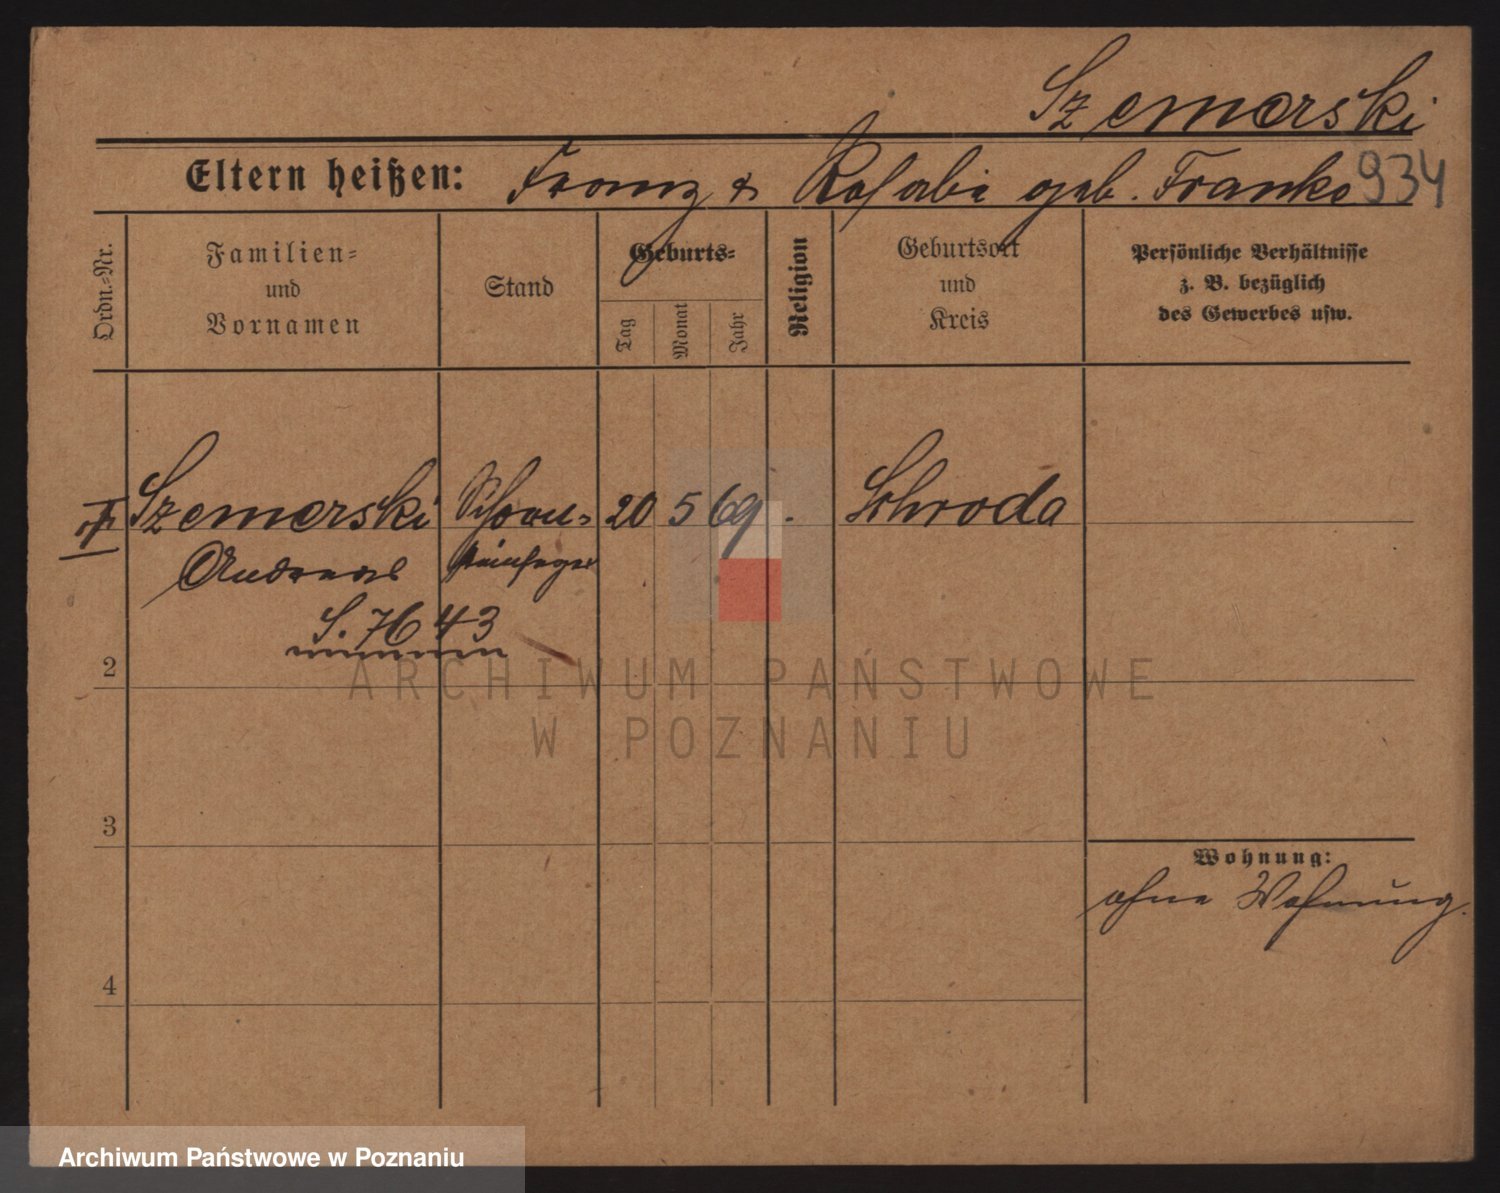 Szemerski
Eltern heißen: Franz & Rosalie geb. Franke 934
Ordn.=Nr.
Familien=
und
Vornamen
Stand
Geburts=
Tag
Monat
Jahr
Religion
Geburtsort
und
Kreis
Persönliche Verhältnisse
z. B. bezüglich
des Gewerbes usw.
Szemerski Schorn= 20 5 69 . Schroda
Andreas steinfeger
S. 7643
2
3
4
Wohnung:
ohne Wohnung.
ARCHIWUM PAŃSTWOWE
W POZNANIU
Archiwum Państwowe w Poznaniu